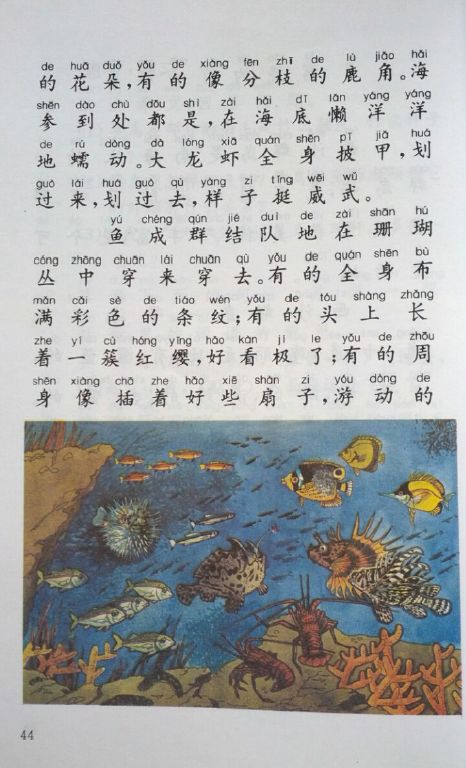 de huā duǒ yǒu de xiàng fēn zhī de lù jiǎo hǎi
的花朵,有的像分枝的鹿角。海
shēn dào chù dōu shì zài hǎi dǐ lǎn yáng yáng
参到处都是,在海底懒洋洋
de rú dòng dà lóng xiā quán shēn pī jiǎ huá
地蠕动。大龙虾全身披甲,划
guò lái huá guò qù yàng zi tǐng wēi wǔ
过来,划过去,样子挺威武。
yú chéng qún jié duì de zài shān hú
鱼成群结队地在珊瑚
cóng zhōng chuān lái chuān qù yǒu de quán shēn bù
丛中穿来穿去。有的全身布
mǎn cǎi sè de tiáo wén yǒu de tóu shàng zhǎng
满彩色的条纹;有的头上长
zhe yí cù hóng yīng hǎo kàn jí le yǒu de zhōu
着一簇红缨,好看极了;有的周
shēn xiàng chā zhe hǎo xiē shàn zi yóu dòng de
身像插着好些扇子,游动的
44